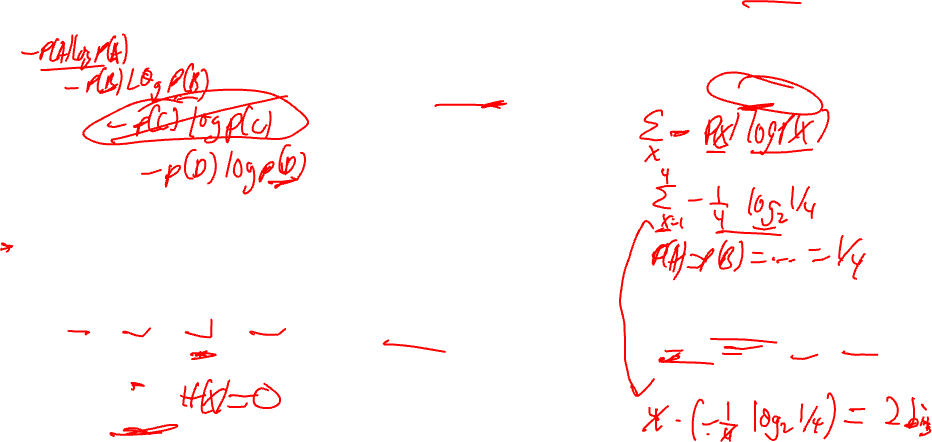 -P(A) log P(A)
-P(B) log P(B)
-P(C) log P(C)
-P(D) log P(D)
H(X)=0
∑x - P(X) log P(X)
∑x=1^4 - 1/4 log₂ 1/4
P(A)=P(B)=...=1/4
4·(-1/4 log₂ 1/4) = 2 bits